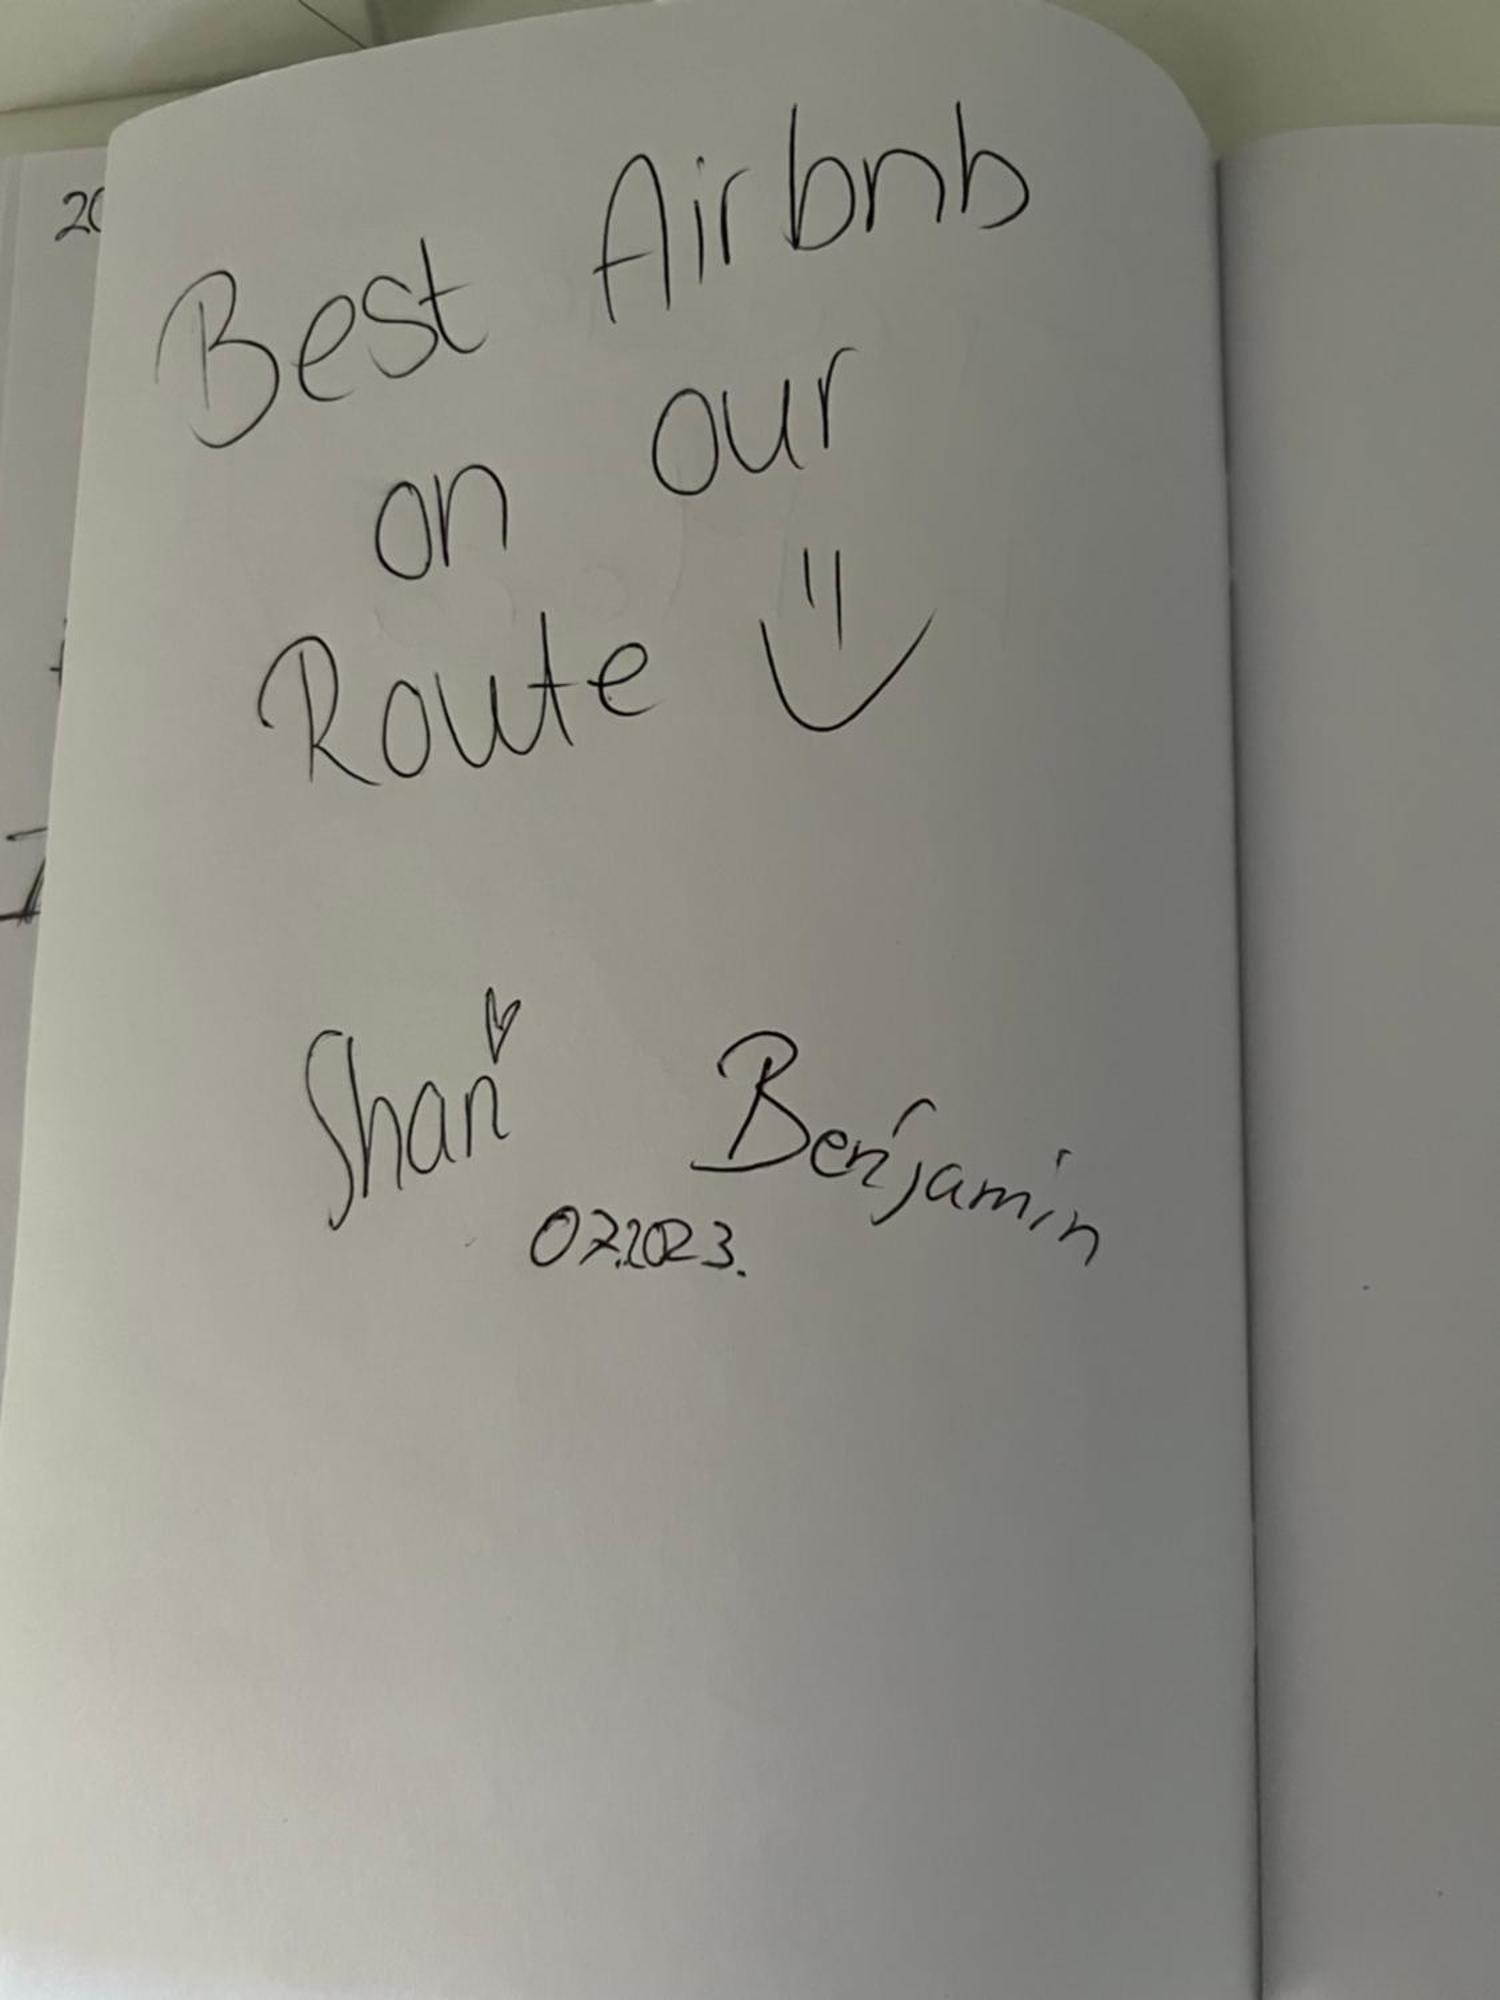 20
Best Airbnb
on our
Route =)
Shan Benjamin
07.2023.